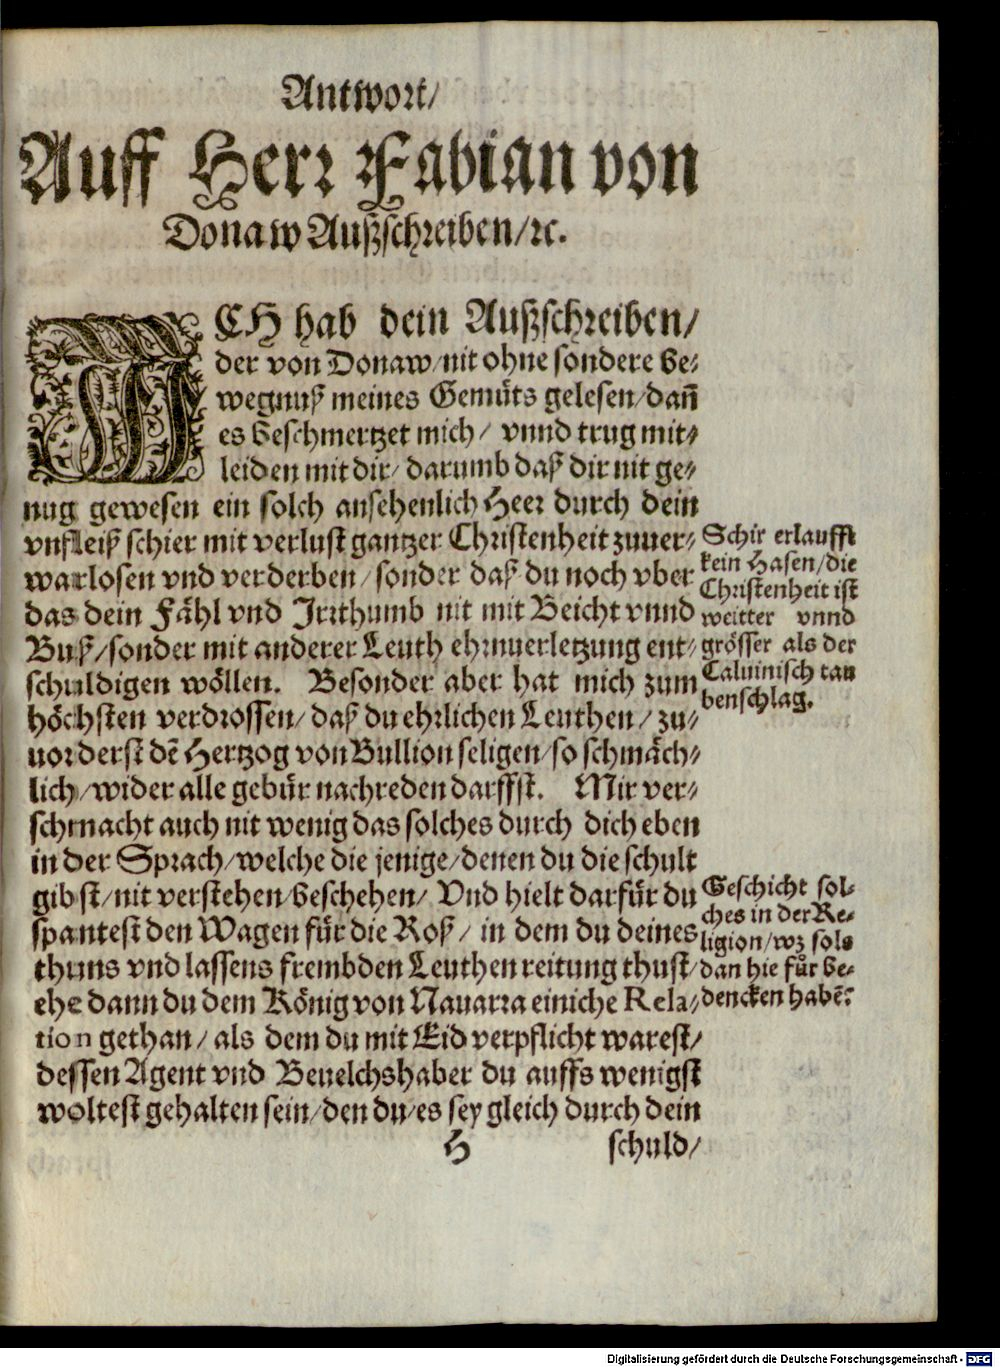 Antwort/
Auff Herr Fabian von
Donaw Außschreiben/ꝛc.
ICH hab dein Außschreiben/
der von Donaw/nit ohne sondere be-
wegnuß meines Gemüts gelesen/dañ
es beschmertzet mich/ vnnd trug mit-
leiden mit dir/ darumb daß dir nit ge-
nug gewesen ein solch ansehenlich Heer durch dein
vnfleiß schier mit verlust gantzer Christenheit zuuer-
warlosen vnd verderben/sonder daß du noch vber
das dein Fähl vnd Irrthumb nit mit Beicht vnnd
Buß/sonder mit anderer Leuth ehrnuerletzung ent-
schuldigen wöllen. Besonder aber hat mich zum
höchsten verdrossen/ daß du ehrlichen Leuthen/ zu-
uorderst dẽ Hertzog von Bullion seligen/so schmäch-
lich/wider alle gebür nachreden darffst. Mir ver-
schmacht auch nit wenig das solches durch dich eben
in der Sprach/welche die jenige/denen du die schult
gibst/nit verstehen/beschehen/ Vnd hielt darfür du
spantest den Wagen für die Roß/ in dem du deines
thuns vnd lassens frembden Leuthen reitung thust/
ehe dann du dem König von Nauarra einiche Rela-
tion gethan/ als dem du mit Eid verpflicht warest/
dessen Agent vnd Beuelchshaber du auffs wenigst
woltest gehalten sein/den du/es sey gleich durch dein
H schuld/
Schir erlaufft
kein Hasen/die
Christenheit ist
weitter vnnd
grösser als der
Caluinisch tau
benschlag.
Geschicht sol-
ches in der Re-
ligion/wz sols
dan hie für be-
dencken habẽ?
Digitalisierung gefördert durch die Deutsche Forschungsgemeinschaft - DFG